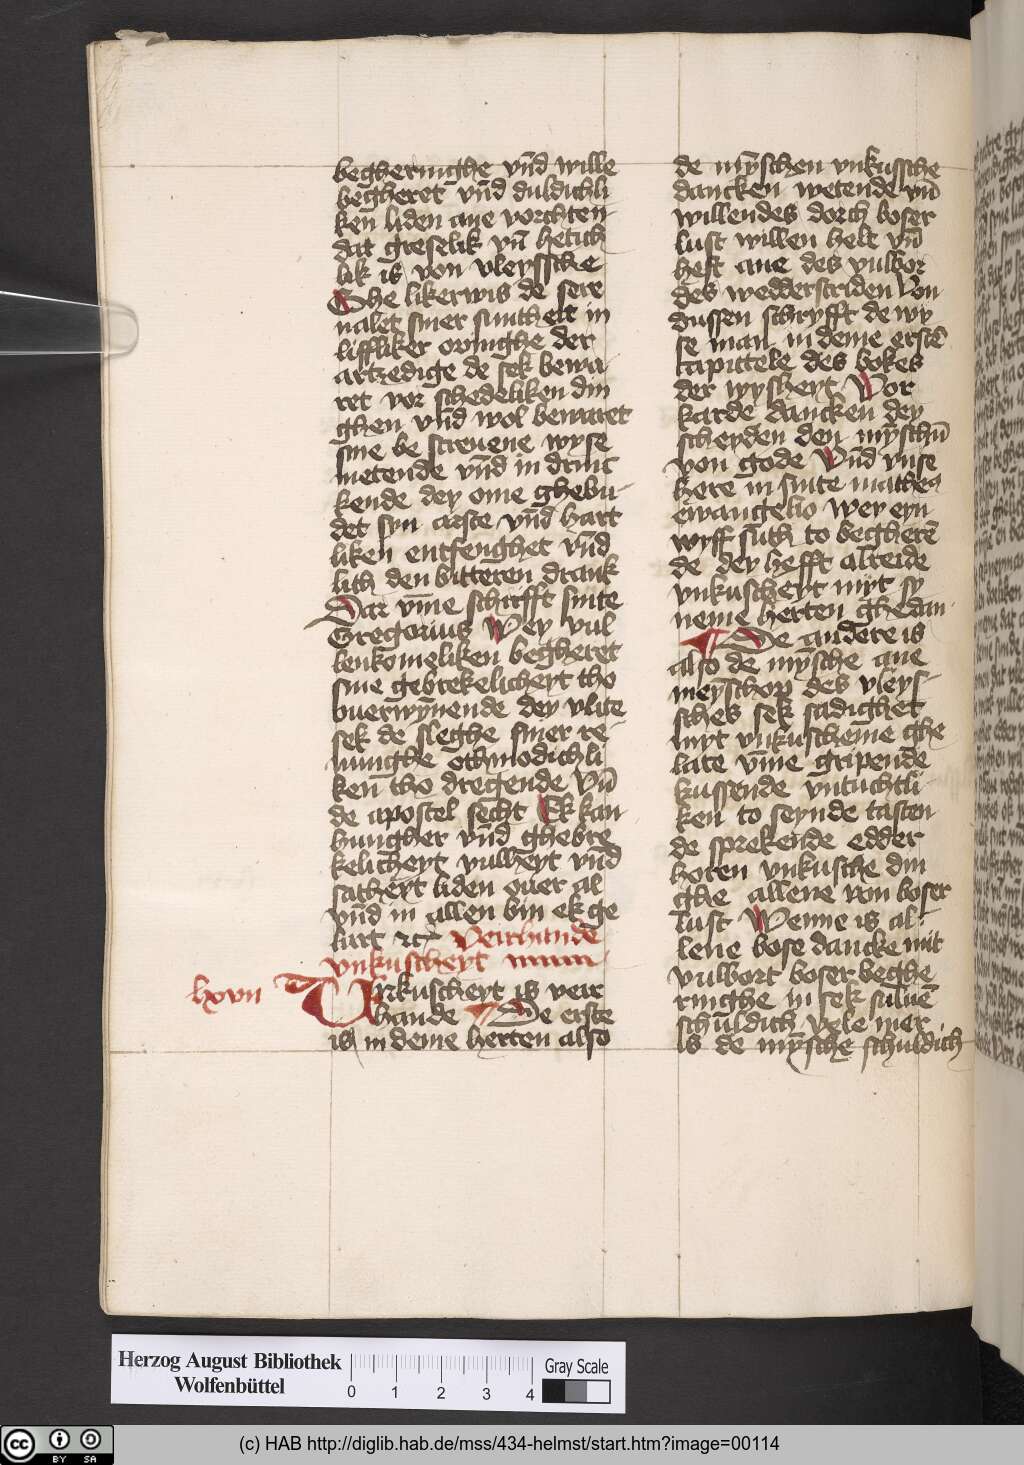 begheringhe vnd wille
begheret vnd duldichli
ken liden ane vorchten
dat greselik vn̄ hetich
lik is von vleyssche
Ghe likerwis de sere
liffliker ordinghe der
artzedige de sek bewa
ret vor schedeliken din
ghen vnd wol bewaret
sine be screuene wyse
metende vnd in drinc
kende dey ome ghebu
det syn arste vnd hart
liken entfenghet vnd
lith den bitteren drank
Dar vm̄e schrifft sinte
Gregorius Wey vul
lenkomeliken begheret
sine gebrekelicheyt tho
vuerwȳnende dey vlite
sek de sleghe siner re
ninghe othmodichli
ken tho dregende Vn̄
de apostel secht Ek kan
hungher vnd ghebre
kelicheyt vulheyt vnd
satheyt liden ouer al
vnd in allen bin ek ge
lart etc Veirhande
vnkuscheyt
lxvii
VNkuscheyt is veir
hande De erste
is in deme herten also
de mȳschen vnkussche
dancken wetende vn̄
willendes dorch boser
lust willen helt vn̄
heft ane des vulbor
des wedderstriden Von
dussen schryfft de wy
se man in deme erstē
capittele des bokes
der wysheyt Vor
karde dancken dey
scheyden den mȳschn̄
von gode Vnd vnse
here in sinte matheꝰ
ewangelio Wey eyn
wyff suth to begherē
de dey hefft alreide
vnkuscheyt myt sy
neme herten ghedan
De andere is
also de mȳsche ane
meyschop des vleys
sches sek sadighet
myt vnkuscheme ghe
late vm̄e gripende
kussende vntuchtli
ken to seynde tasten
de sprekende edder
horen vnkusche din
ghe allene von boser
lust Wenne is al
lene bose dancke mit
vulbort boser beghe
ringhe in sek suluē
schuldich vele mer
is de mȳsche schuldich
Herzog August Bibliothek
Wolfenbüttel
0 1 2 3 4
Gray Scale
cc BY SA
(c) HAB http://diglib.hab.de/mss/434-helmst/start.htm?image=00114